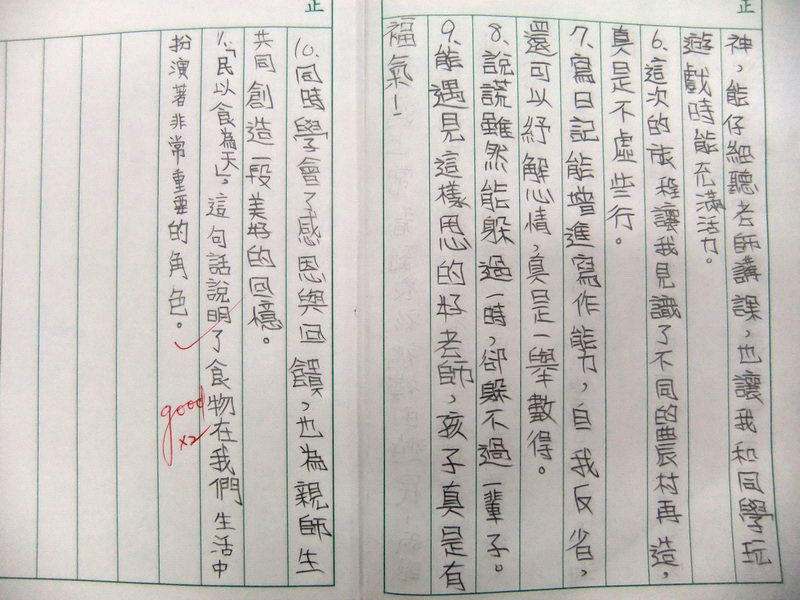 正
神，能仔細聽老師講課，也讓我和同學玩
遊戲時能充滿活力。
6.這次的旅程讓我見識了不同的農村再造，
真是不虛些行。
7.寫日記能增進寫作能力，自我反省，
還可以紓解心情，真是一舉數得。
8.說謊雖然能躲過一時，卻躲不過一輩子。
9.能遇見這樣恩的好老師，孩子真是有
福氣！
正
10.同時學會了感恩與回饋，也為親師生
共同創造一段美好的回憶。
1.「民以食為天」，這句話說明了食物在我們生活中
扮演著非常重要的角色。
good
x2